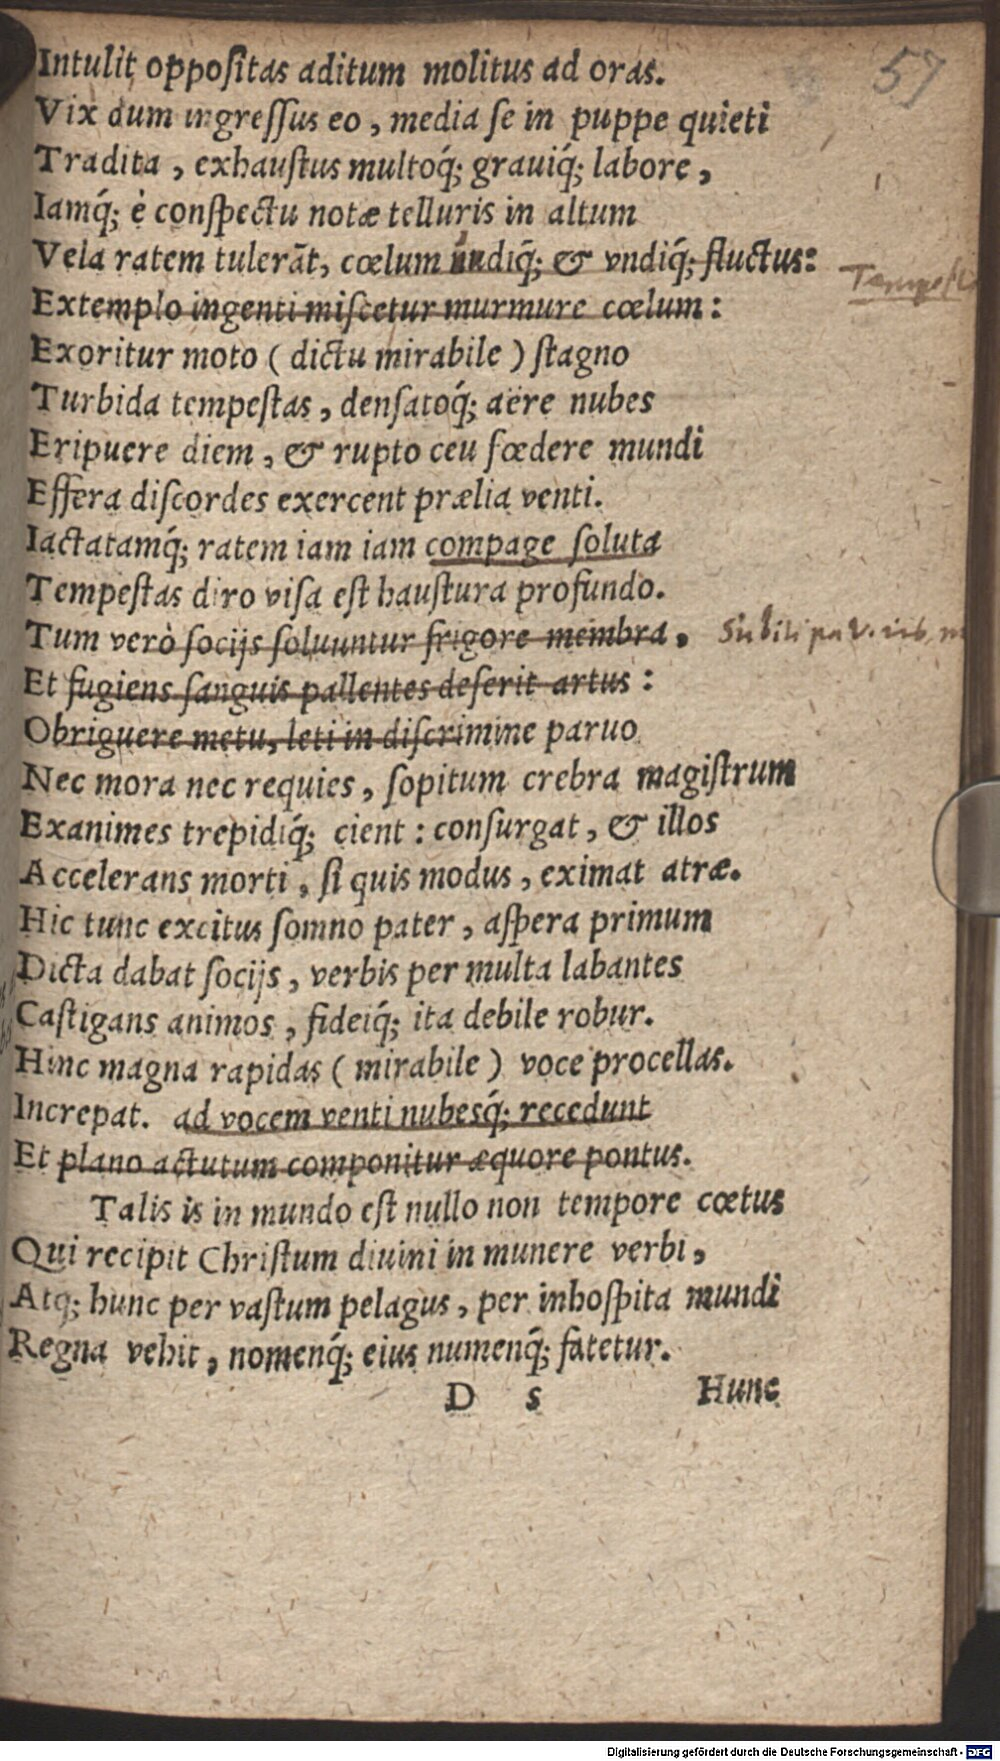 57
Intulit oppoſitas aditum molitus ad oras.
Vix dum ingreſſus eo, media ſe in puppe quieti
Tradita, exhauſtus multoq́; grauiq́; labore,
Iamq́; è conſpectu notæ telluris in altum
Vela ratem tulerãt, cœlum undiq́; & vndiq́; fluctus:
Extemplo ingenti miſcetur murmure cœlum:
Exoritur moto (dictu mirabile) ſtagno
Turbida tempeſtas, denſatoq́; aëre nubes
Eripuere diem, & rupto ceu fœdere mundi
Effera diſcordes exercent prælia venti.
Iactatamq́; ratem iam iam compage ſoluta
Tempeſtas diro viſa eſt hauſtura profundo.
Tum verò ſocijs ſoluuntur frigore membra,
Et fugiens ſanguis pallentes deſerit artus:
Obriguere metu, leti in diſcrimine paruo
Nec mora nec requies, ſopitum crebra magiſtrum
Exanimes trepidiq́; cient: conſurgat, & illos
Accelerans morti, ſi quis modus, eximat atræ.
Hic tunc excitus ſomno pater, aſpera primum
Dicta dabat ſocijs, verbis per multa labantes
Caſtigans animos, fideiq́; ita debile robur.
Hinc magna rapidas (mirabile) voce procellas.
Increpat. ad vocem venti nubesq́; recedunt
Et plano actutum componitur æquore pontus.
Talis is in mundo eſt nullo non tempore cœtus
Qui recipit Chriſtum diuini in munere verbi,
Atq; hunc per vaſtum pelagus, per inhoſpita mundi
Regna vehit, nomenq́; eius numenq́; fatetur.
D 5 Hunc
Digitalisierung gefördert durch die Deutsche Forschungsgemeinschaft - DFG